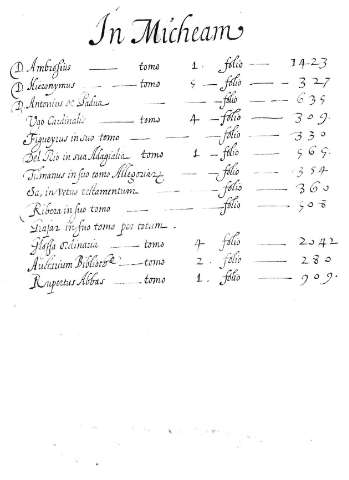 In Micheam
D Ambrosius — tomo 1. folio — 1423
D Hieronymus — tomo 5 — folio — 327
D. Antonius de Padua — folio — 635
Ugo Cardinalis — tomo 4 — folio — 309.
Figueyrus in suo tomo — folio — 330
Del Rio in sua Adagialia tomo 1 — folio — 565.
in suo tomo — folio — 354
Sa, in vetus testamentum — folio — 360
Ribera in suo tomo — folio — 508
in suo tomo per totum.
Glossa ordinaria — tomo 4 folio — 2042
Auctarium — tomo 2. folio — 280
Rupertus Abbas — tomo 1. folio — 909.